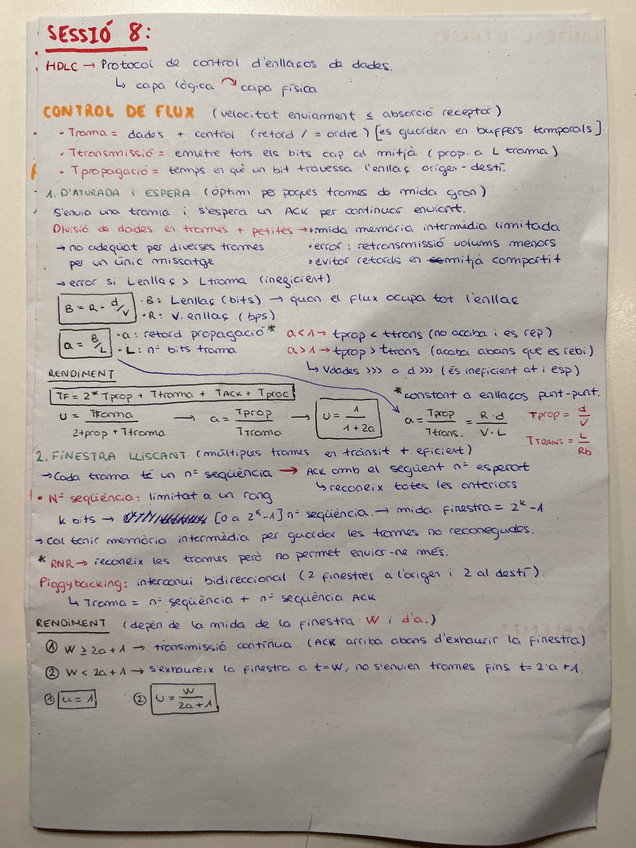 SESSIÓ 8:
HDLC → Protocol de control d'enllaços de dades.
↳ capa lògica ↷ capa física
CONTROL DE FLUX (velocitat enviament ≤ absorció receptor)
• Trama = dades + control (retard / = ordre) [es guarden en buffers temporals]
• Ttransmissió = emetre tots els bits cap al mitjà (prop. a L trama)
• Tpropagació = temps en què un bit travessa l'enllaç origen-destí.
1. D'ATURADA I ESPERA (òptim per poques trames de mida gran)
S'envia una trama i s'espera un ACK per continuar enviant.
Divisió de dades en trames + petites → • mida memòria intermèdia limitada
→ no adequat per diverses trames • error: retransmissió volums menors
per un únic missatge • evitar retards en mitjà compartit
→ error si Lenllaç > Ltrama (ineficient)
B = R · d/V • B: Lenllaç (bits) → quan el flux ocupa tot l'enllaç
• R: V. enllaç (bps).
a = B/L • a: retard propagació * a<1 → tprop < ttrans (no acaba i es rep)
• L: nº bits trama a>1 → tprop > ttrans (acaba abans que es rebi)
↳ Vdades >>> o d >>> (és ineficient at i esp)
RENDIMENT
TF = 2* Tprop + Ttrama + TACK + Tproc * constant a enllaços punt-punt.
U = Ttrama / 2tprop + Ttrama → a = Tprop / Ttrama → U = 1 / 1+2a a = Tprop / Ttrans. = R·d / V·L Tprop = d/V
TTRANS = L/Rb
2. FINESTRA LLISCANT (múltiples trames en trànsit + eficient)
→ Cada trama té un nº seqüència → ACK amb el següent nº esperat
↳ reconeix totes les anteriors
• Nº seqüència: limitat a un rang
k bits → [0 a 2^k-1] nº seqüència. → mida finestra = 2^k-1
→ Cal tenir memòria intermèdia per guardar les trames no reconegudes.
* RNR → reconeix les trames però no permet enviar-ne més.
Piggybacking: intercanvi bidireccional (2 finestres a l'origen i 2 al destí)
↳ Trama = nº seqüència + nº seqüència ACK
RENDIMENT (depèn de la mida de la finestra W i d'a.)
① W ≥ 2a+1 → transmissió contínua (ACK arriba abans d'exhaurir la finestra)
② W < 2a+1 → s'exhaureix la finestra a t=W, no s'envien trames fins t=2·a+1.
① U = 1 ② U = W / 2a+1